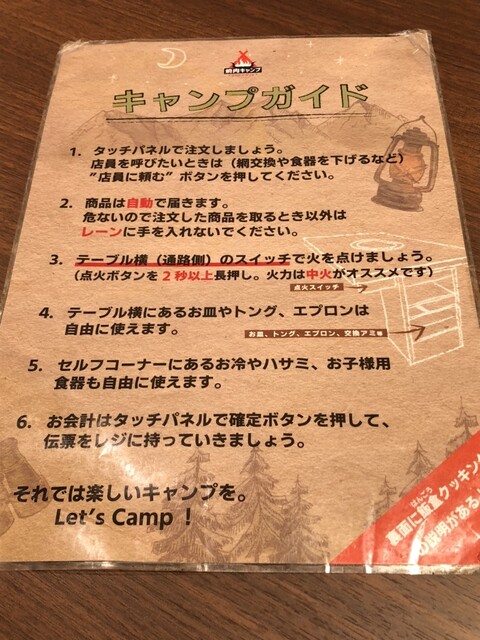 焼肉キャンプ
キャンプガイド
1. タッチパネルで注文しましょう。
店員を呼びたいときは（網交換や食器を下げるなど）
"店員に頼む"ボタンを押してください。
2. 商品は自動で届きます。
危ないので注文した商品を取るとき以外は
レーンに手を入れないでください。
3. テーブル横（通路側）のスイッチで火を点けましょう。
（点火ボタンを２秒以上長押し。火力は中火がオススメです）
点火スイッチ
4. テーブル横にあるお皿やトング、エプロンは
自由に使えます。
お皿、トング、エプロン、交換アミ等
5. セルフコーナーにあるお冷やハサミ、お子様用
食器も自由に使えます。
6. お会計はタッチパネルで確定ボタンを押して、
伝票をレジに持っていきましょう。
それでは楽しいキャンプを。
Let's Camp！
はんごう
裏面に飯盒クッキング
の説明がある